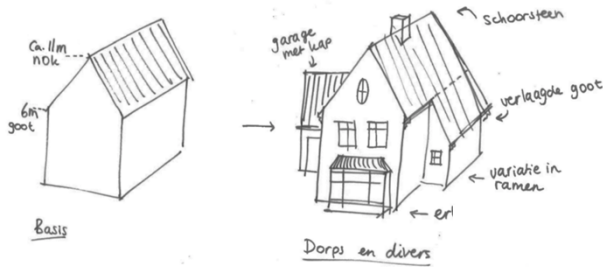 Ca. 11m
nok
6m
goot
Basis
garage
met kap
schoorsteen
verlaagde goot
variatie in
ramen
Dorps en divers